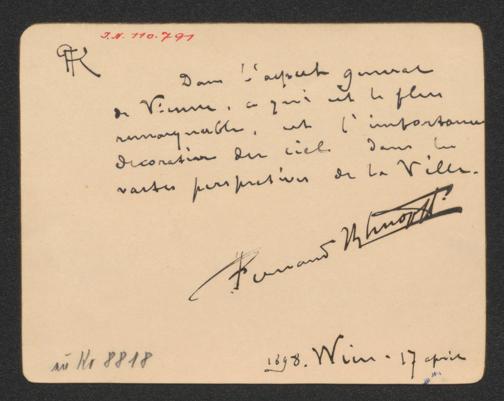 J.N. 110.791
FK
Dans l'aspect general
de Vienne, ce qui est le plus
remarquable, est l'importance
decoration du ciel dans les
vastes perspectives de la Ville.
Fernand Khnopff.
1898. Wien - 17 april
zu Kr 8818